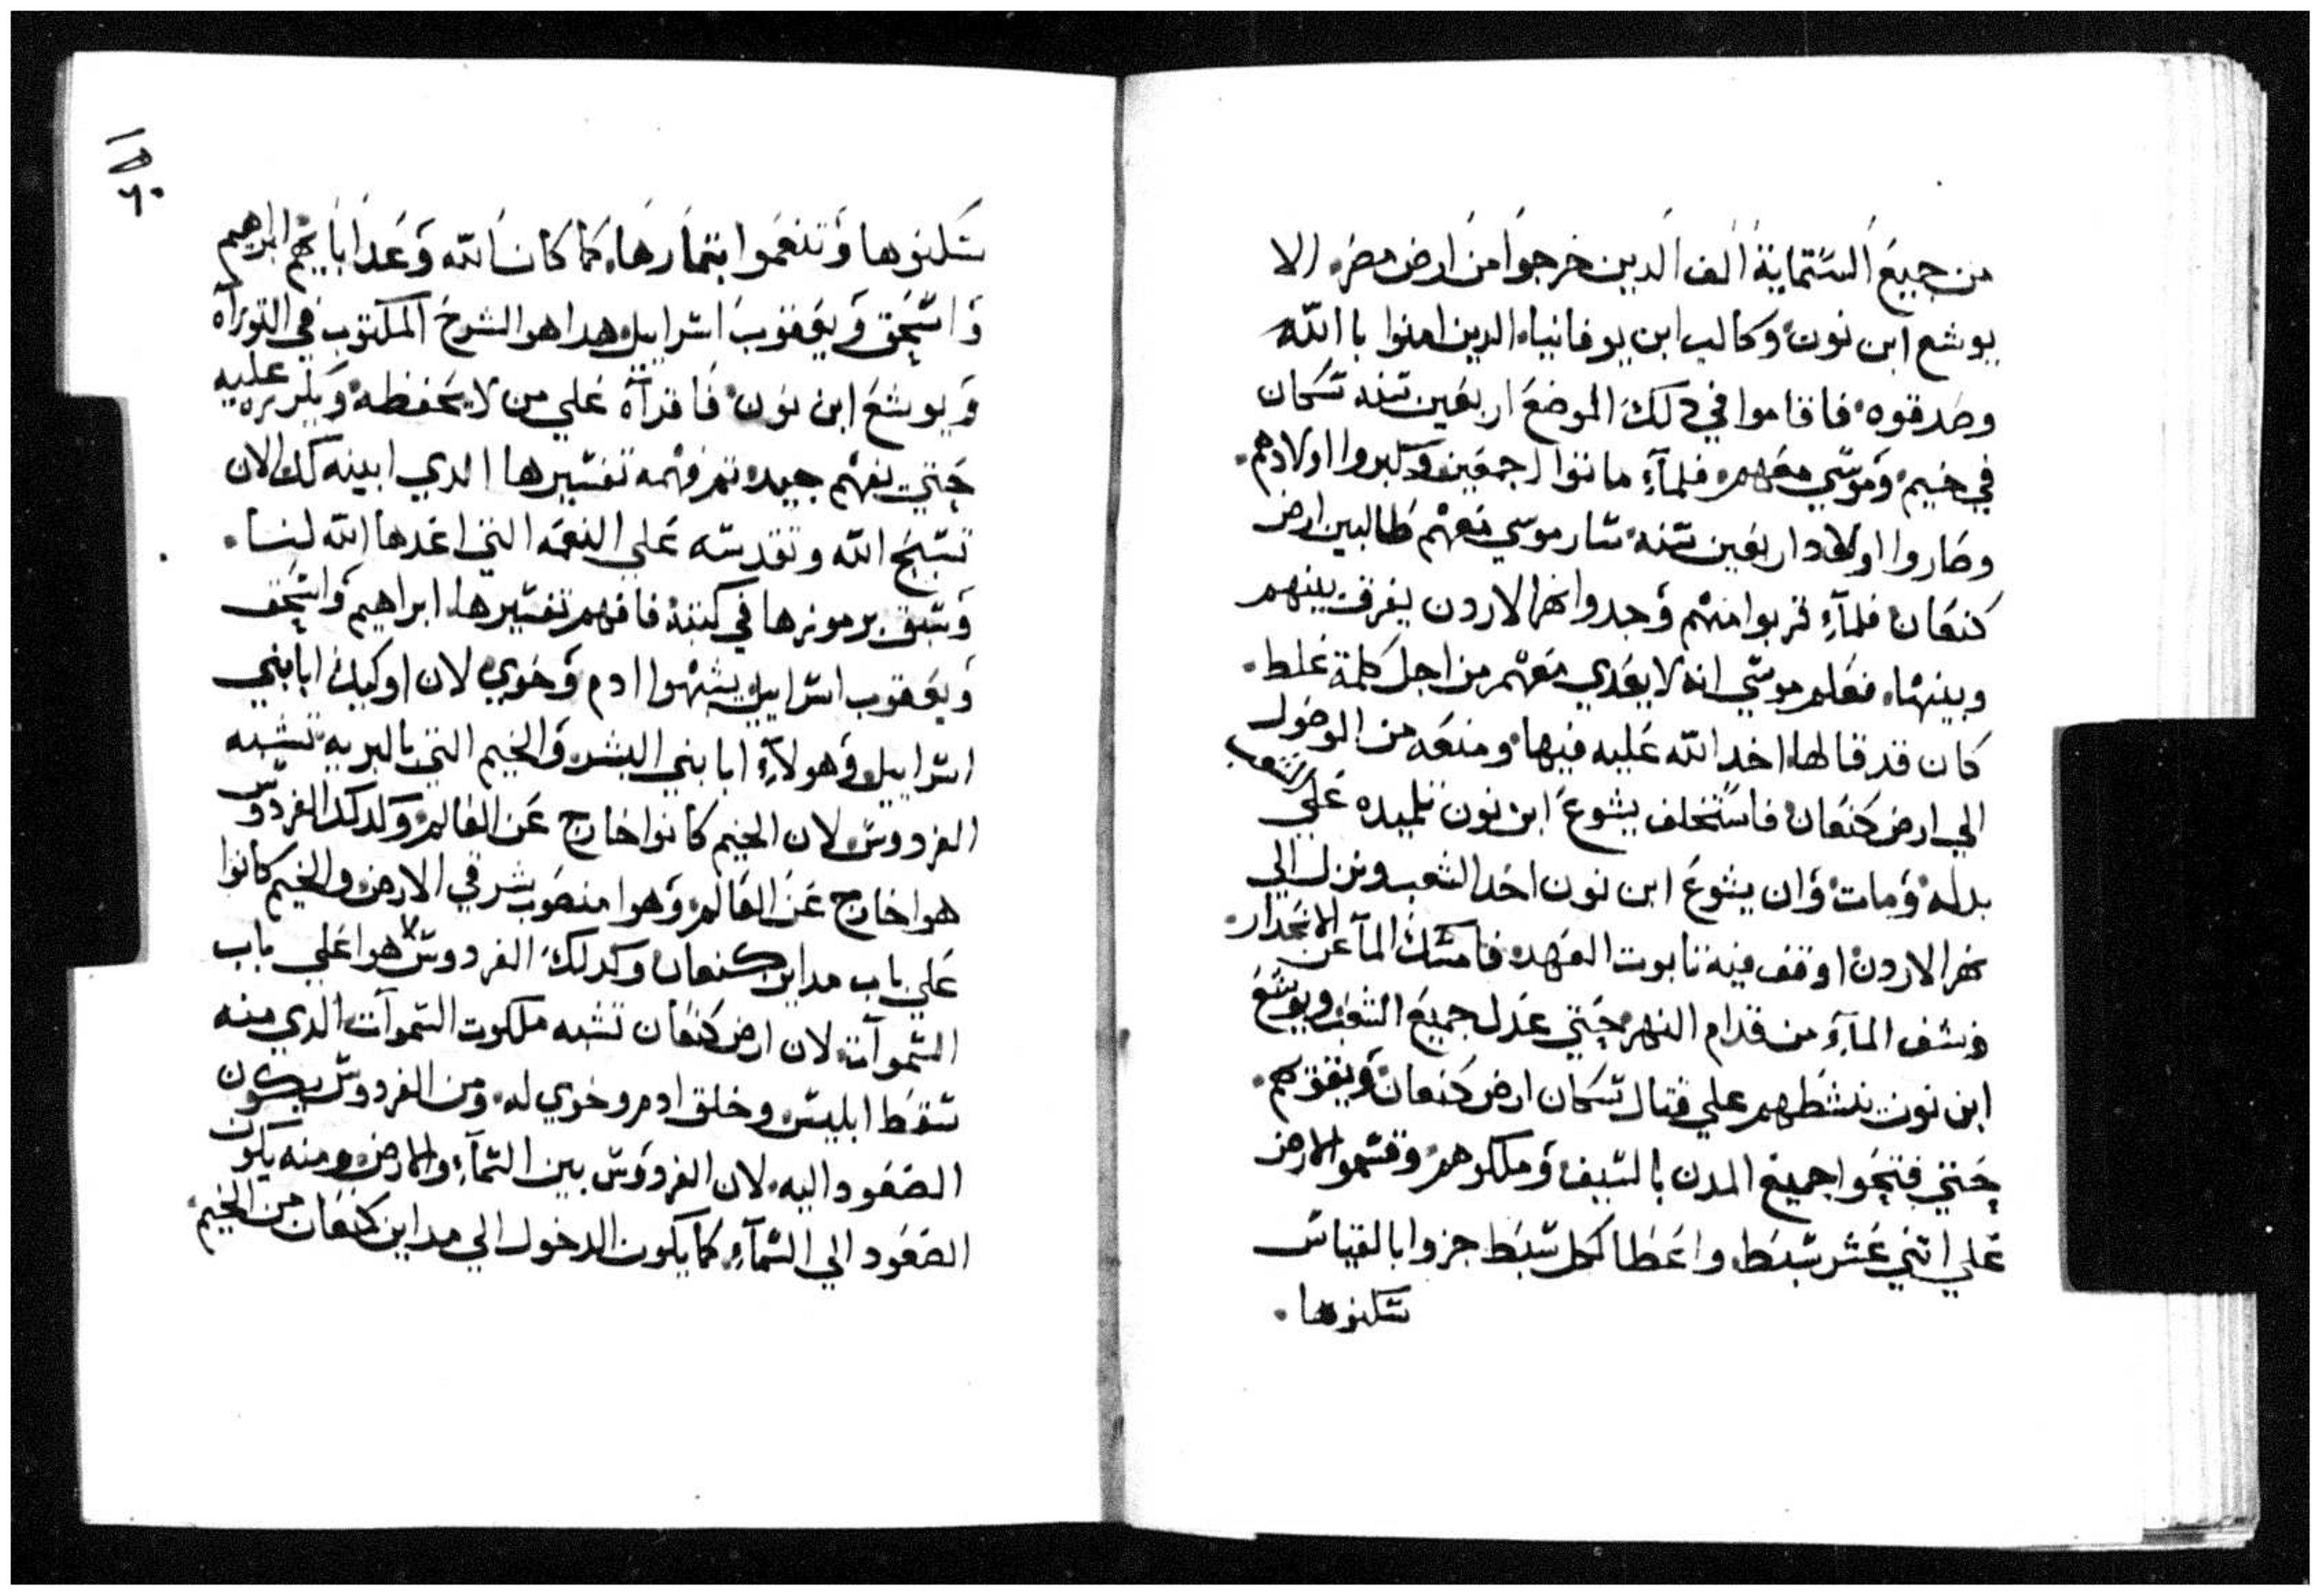 من جميع الستماية الف الدين خرجوا من ارض مصر. الا
يوشع ابن نون وكالب ابن يوفانيا. الدين امنوا با الله
وصدقوه. فاقاموا في دلك الموضع اربعين سنه سكان
في خيم. وموسي معهم. فلمآء ماتوا اجمعين وكبروا اولادهم.
وصاروا اولاد اربعين سنه. سار موسي معهم طالبين ارض
كنعان فلمآء قربوا منهم وجدوا نهر الاردن يفرق بينهم
وبينها. فعلم موسي انه لا يعدي معهم من اجل كلمة غلط.
كان قد قالها. اخد الله عليه فيها. ومنعه من الوصول
الي ارض كنعان. فاستخلف يشوع ابن نون تلميده علي الشعب
بدله. ومات. وان يشوع ابن نون اخد الشعب ونزل الي
نهر الاردن. اوقف فيه تابوت العهد. فامسك المآ عن الانحدار.
ونشف المآء من قدام النهر. حتي عدل جميع الشعب. ويوشع
ابن نون ينشطهم علي قتال سكان ارض كنعان. ويقوهم.
حتي فتحوا جميع المدن بالسيف وملكوهم. وقسموا الارض
علي اتني عشر سبط. واعطا كل سبط جزوا بالقياس
سكنوها.
١٥
٦٠
سكنوها وتنعموا بتمارها. كما كان الله وعد ابايهم ابرهيم
واسحق ويعقوب اسراييل. هدا هو الشرح المكتوب في التوراه
ويوشع ابن نون. فاقرآه علي من لا يحفظه. ويكرره عليه
حتي يفهم جيده. تم فهمه تفسيرها الدي ابينه لك الان
تسبح الله وتقدسه علي النعمه التي اعدها الله لنا.
وسبق برموزها في كتبه. فافهم تفسيرها. ابراهيم واسحق
ويعقوب اسراييل يشبهوا ادم وحوي. لان اوليك ابا بني
اسراييل. وهولآء ابا بني البشر. والخيم التي بالبريه تشبه
الفردوس. لان الخيم كانوا خارج عن العالم. وكدلك الفردوس
هوا خارج عن العالم. وهوا منصوب شرقي الارض. والخيم كانوا
علي باب مداين كنعان وكدلك الفردوس هوا علي باب
السموآت. لان ارض كنعان تشبه ملكوت السموآت الدي منه
سقط ابليس. وخلق ادم وحوي له. ومن الفردوس يكون
الصعود اليه. لان الفردوس بين السمآء والارض. ومنه يكون
الصعود الي السمآء. كما يكون الدخول الي مداين كنعان من الخيم.